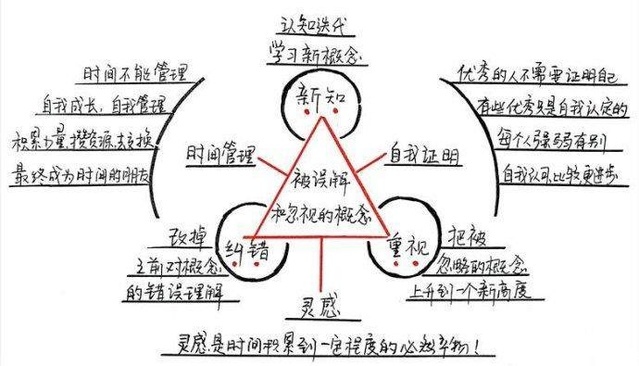 认知迭代
学习新概念
新知
时间不能管理
自我成长,自我管理
积累力量,攒资源,去交换
最终成为时间的朋友
时间管理
优秀的人不需要证明自己
有些优秀只是自我认定的
每个人强弱有别
自我认可比较更进步
自我证明
被误解
和忽视的概念
改掉
之前对概念
的错误理解
纠错
重视
把被
忽略的概念
上升到一个新高度
灵感
灵感是时间积累到一定程度的必然产物!